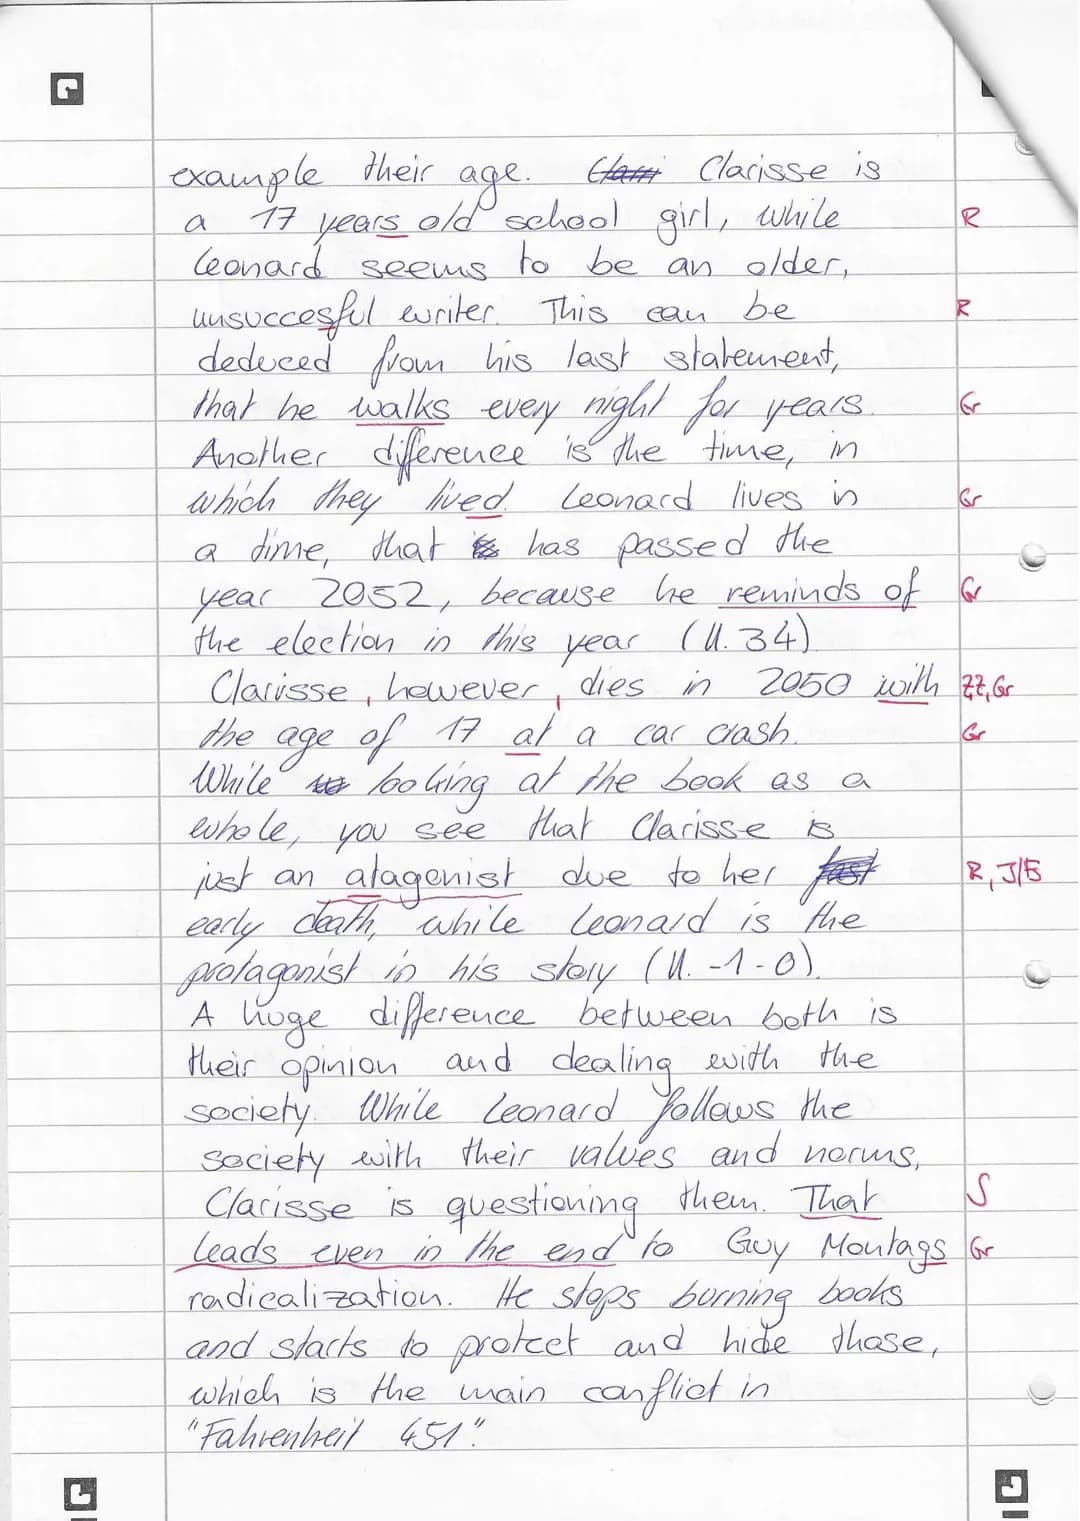 example their age. Clarisse is
a 17 years old school girl, while R
Leonard seems to be an older,
unsuccesful writer. This can be R
deduced from his last statement,
that he walks every night for years. Gr
Another difference is the time, in
which they lived. Leonard lives in Gr
a time, that has passed the
year 2052, because he reminds of Gr
the election in this year (ll. 34).
Clarisse, however, dies in 2050 with ZZ, Gr
the age of 17 at a car crash. Gr
While looking at the book as a
whole, you see that Clarisse is
just an atagenist due to her R,
early death, while Leonard is the
protagonist in his story (ll. -1-0).
A huge difference between both is
their opinion and dealing with the
society. While Leonard follows the
society with their values and norms,
Clarisse is questioning them. That S
leads even in the end to Guy Montags Gr
radicalization. He stops burning books
and starts to protect and hide those,
which is the main conflict in
"Fahrenheit 451".